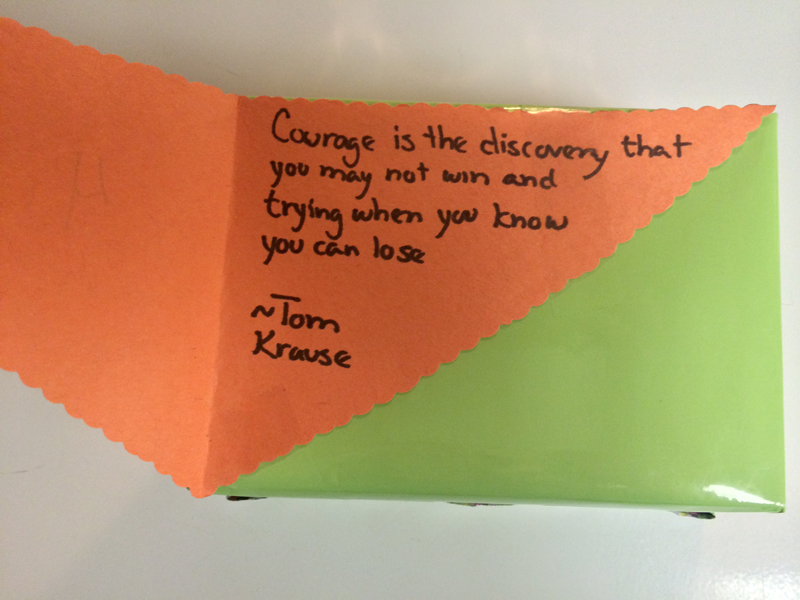 Courage is the discovery that
you may not win and
trying when you know
you can lose
~Tom
Krause